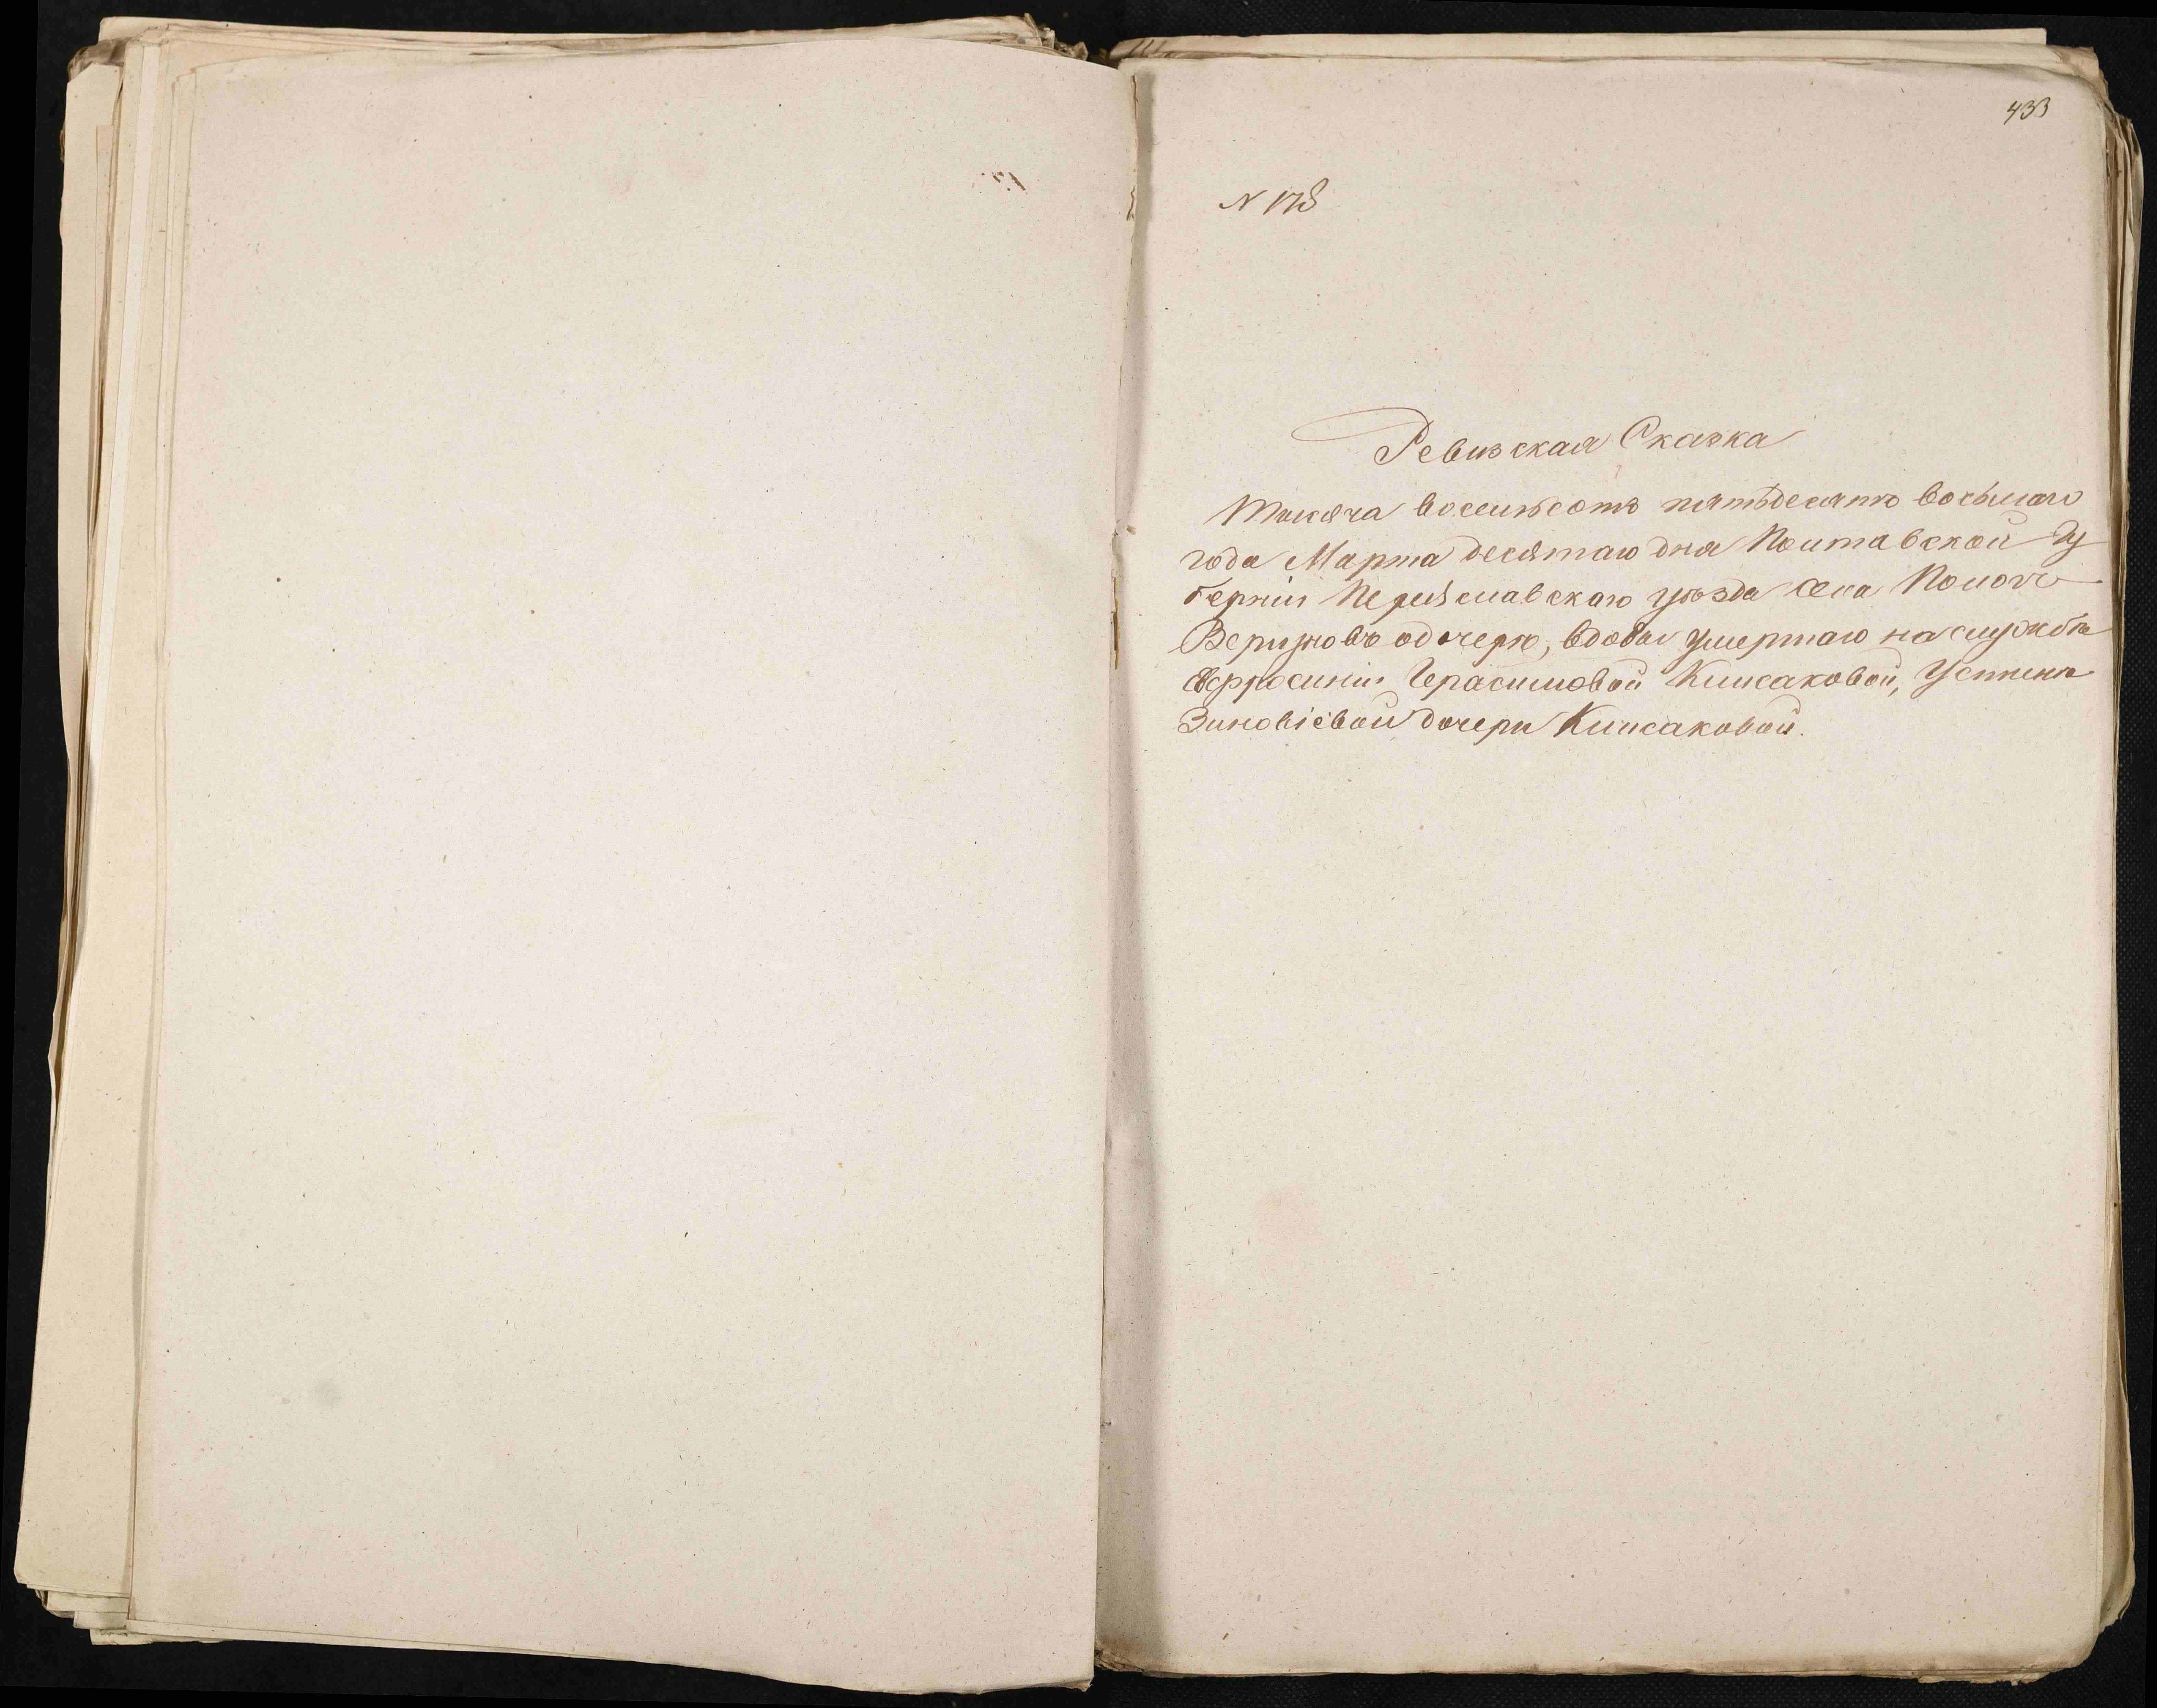 433
N 178
Ревизская Сказка
Тысяча восемьсотъ пятьдесятъ восьмаго
года Марта десятаго дня Полтавской Гу
берніи Переяславскаго уѣзда села Пологъ
Вергуновъ о дочерѣ, вдовы умершаго на службѣ
Евфросиніи Герасимовой Кипсаковой, Устинѣ
Зиновіевой дочери Кипсаковой.